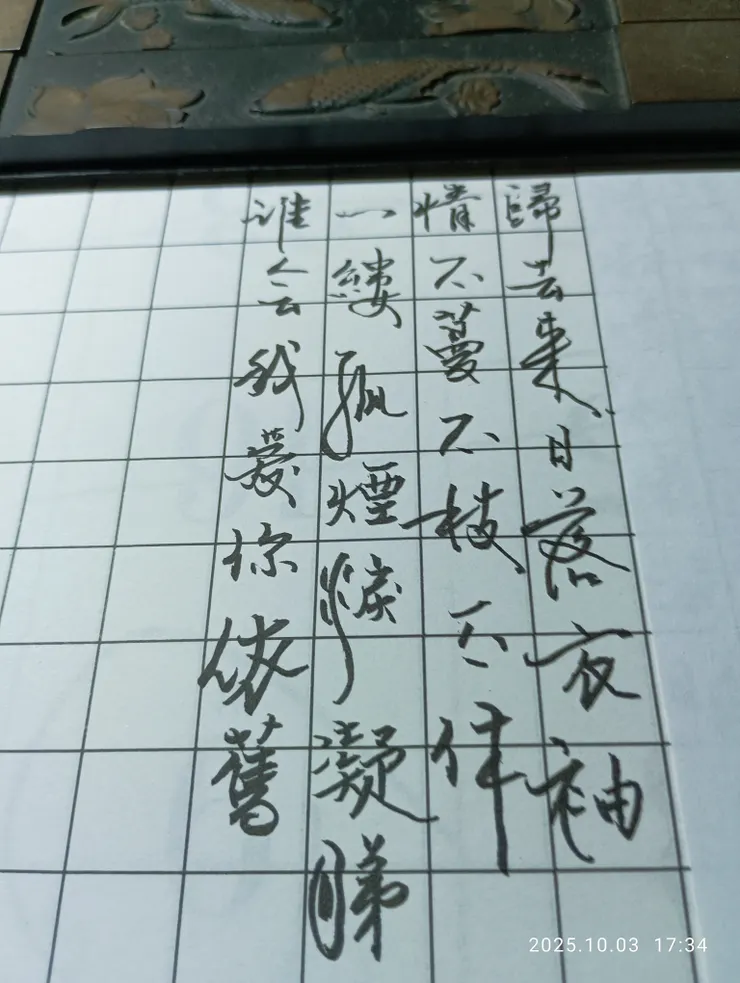 歸去来日落衣袖
情不蔓不枝不
一縷孤煙淚凝睇
谁会我爱你依舊
2025.10.03 17:34